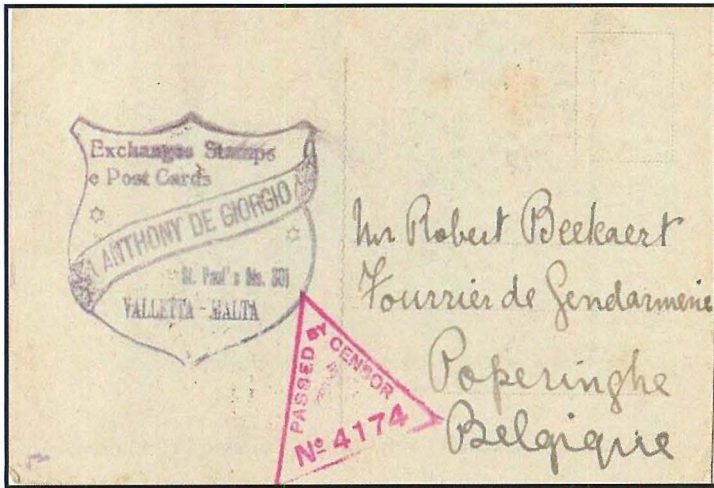 Exchanges Stamps
e Post Cards
ANTHONY DE GIORGIO
St. Paul's No. 301
VALLETTA - MALTA
PASSED BY CENSOR
Nº 4174
Mr Robert Beekaert
Fourrier de Gendarmerie
Poperinghe
Belgique